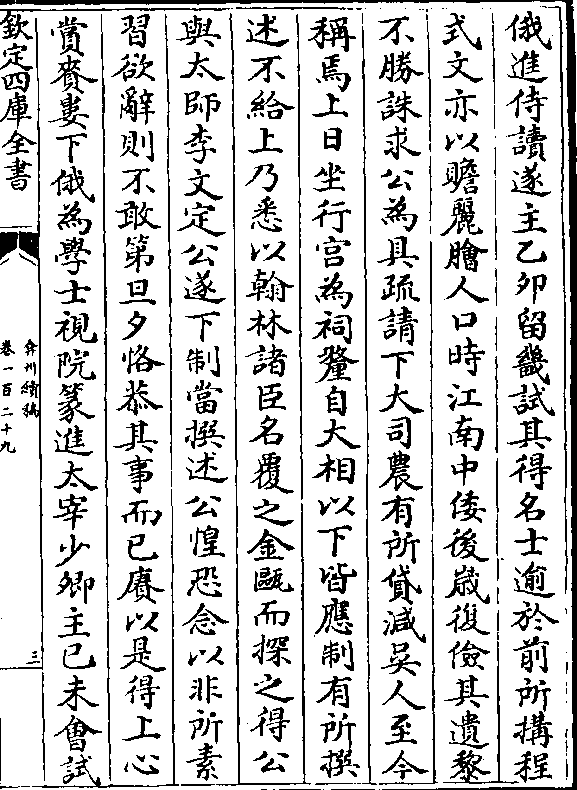 俄進侍讀遂主乙卯留畿試其得名士逾於前所搆程
式文亦以贍麗膾人口時江南中倭後歲復儉其遺黎
不勝誅求公為具疏請下大司農有所貸減吳人至今
稱焉上日坐行宮為祠釐自大相以下皆應制有所撰
述不給上乃悉以翰林諸臣名覆之金甌而探之得公
與太師李文定公遂下制當撰述公惶恐念以非所素
習欲辭則不敢第旦夕恪恭其事而已賡以是得上心
賞賚婁下俄為學士視院篆進太宰少卿主己未會試
欽定四庫全書
弇州續稿
卷一百二十九
三